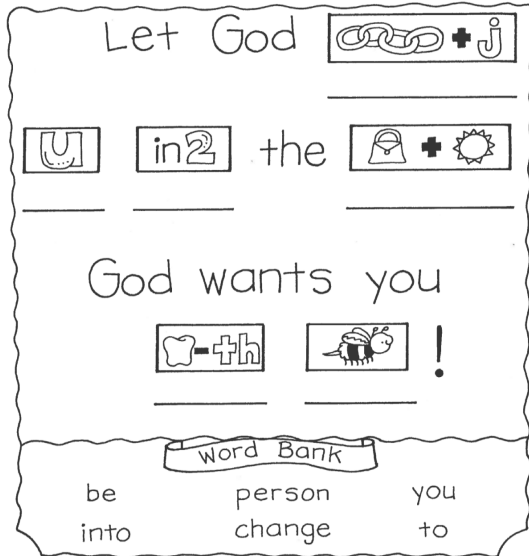 Let God + j
u in2 the +
God wants you
-th !
Word Bank
be person you
into change to